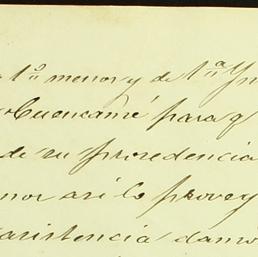 1º menor y de 1ª Yn
Cuencamé para q
de su procedencia
nor asi lo provey
asistencia damo